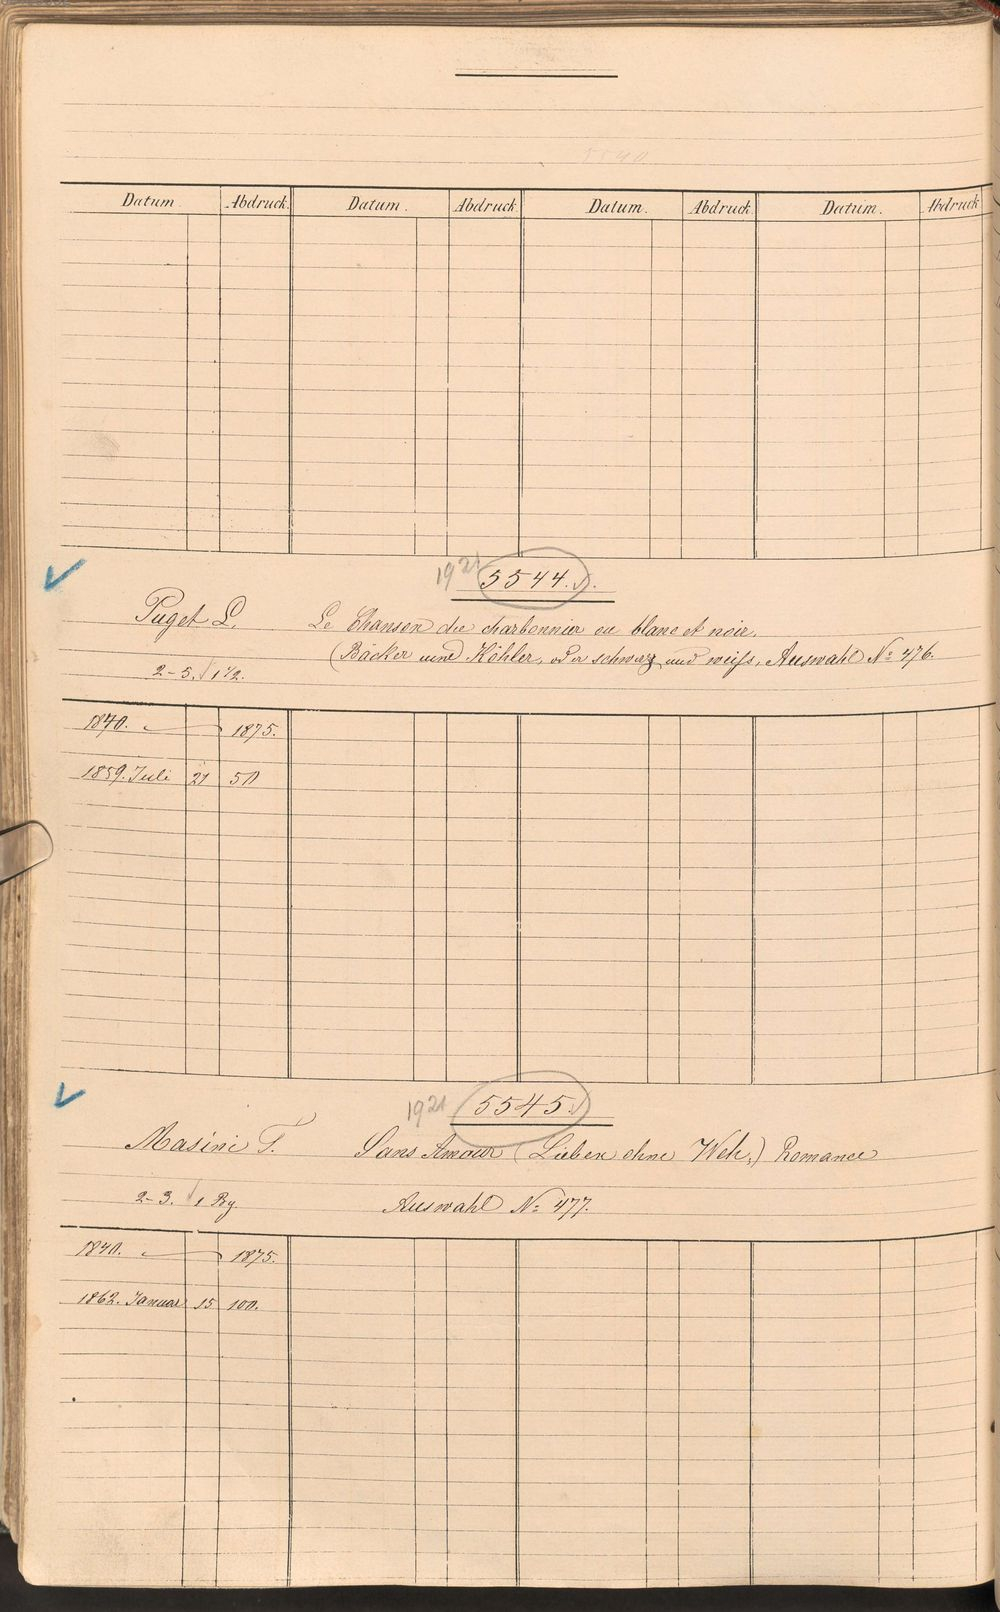 5540
Datum. Abdruck. Datum. Abdruck Datum. Abdruck. Datum. Abdruck
1921 5544.
Puget L. Le Chanson du charbonnier ou blanc et noir.
(Bäcker und Köhler, oder schwarz und weiß, Auswahl No 476.
2-5. 1 1/2.
1840. 1875.
1859. Juli 21 50
1921 5545.
Masini F. Sans Amour (Lieben ohne Weh.) Romance
2-3. 1 Bg. Auswahl No 477.
1840. 1875.
1862. Januar 15 100.